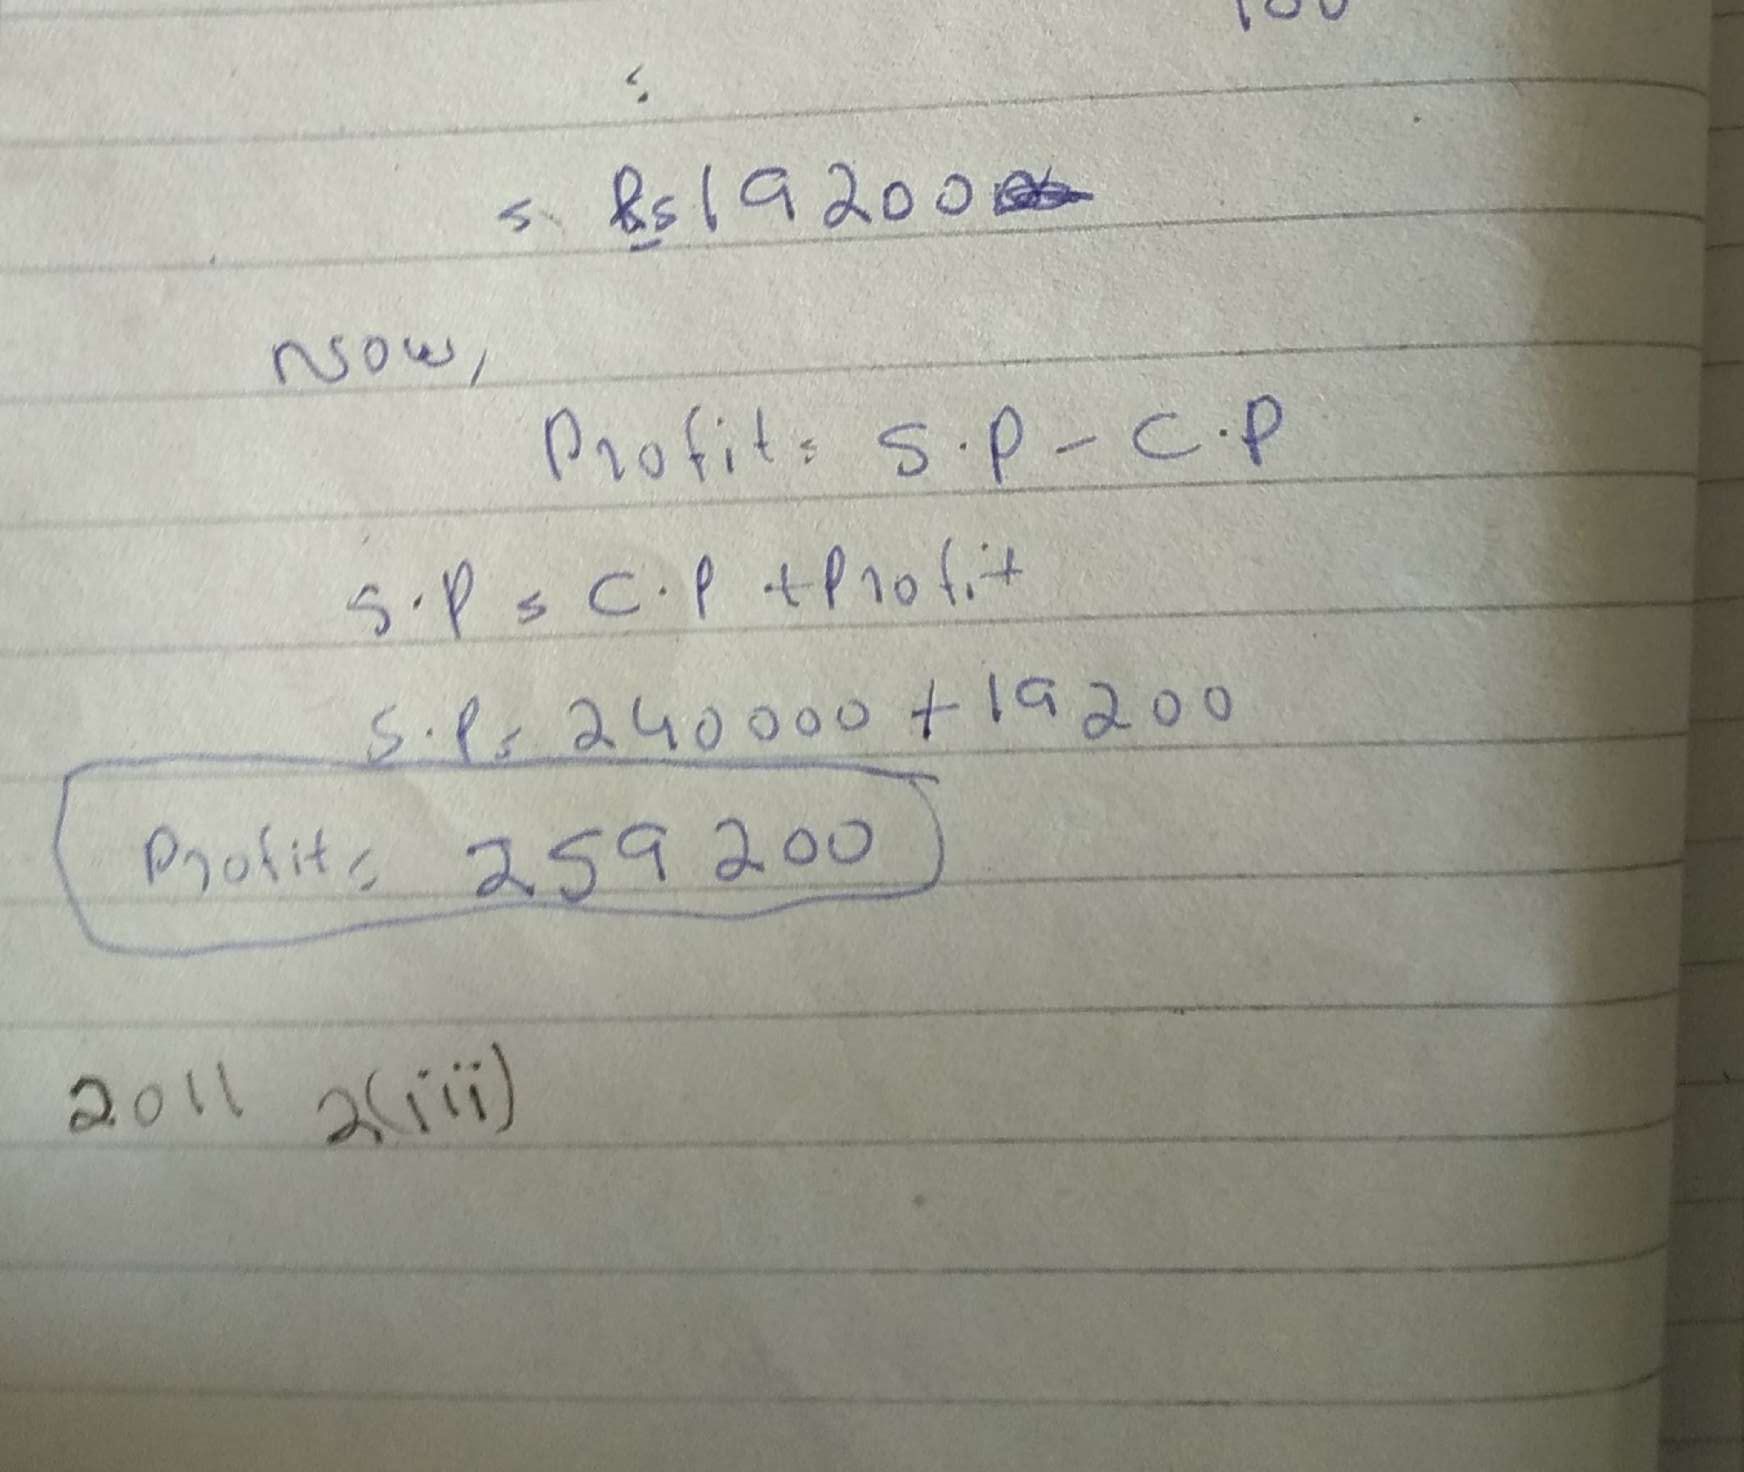 100
=
= Rs 19200
Now,
Profit = S.P - C.P
S.P = C.P + Profit
S.P = 240000 + 19200
Profit = 259200
2011 2(iii)